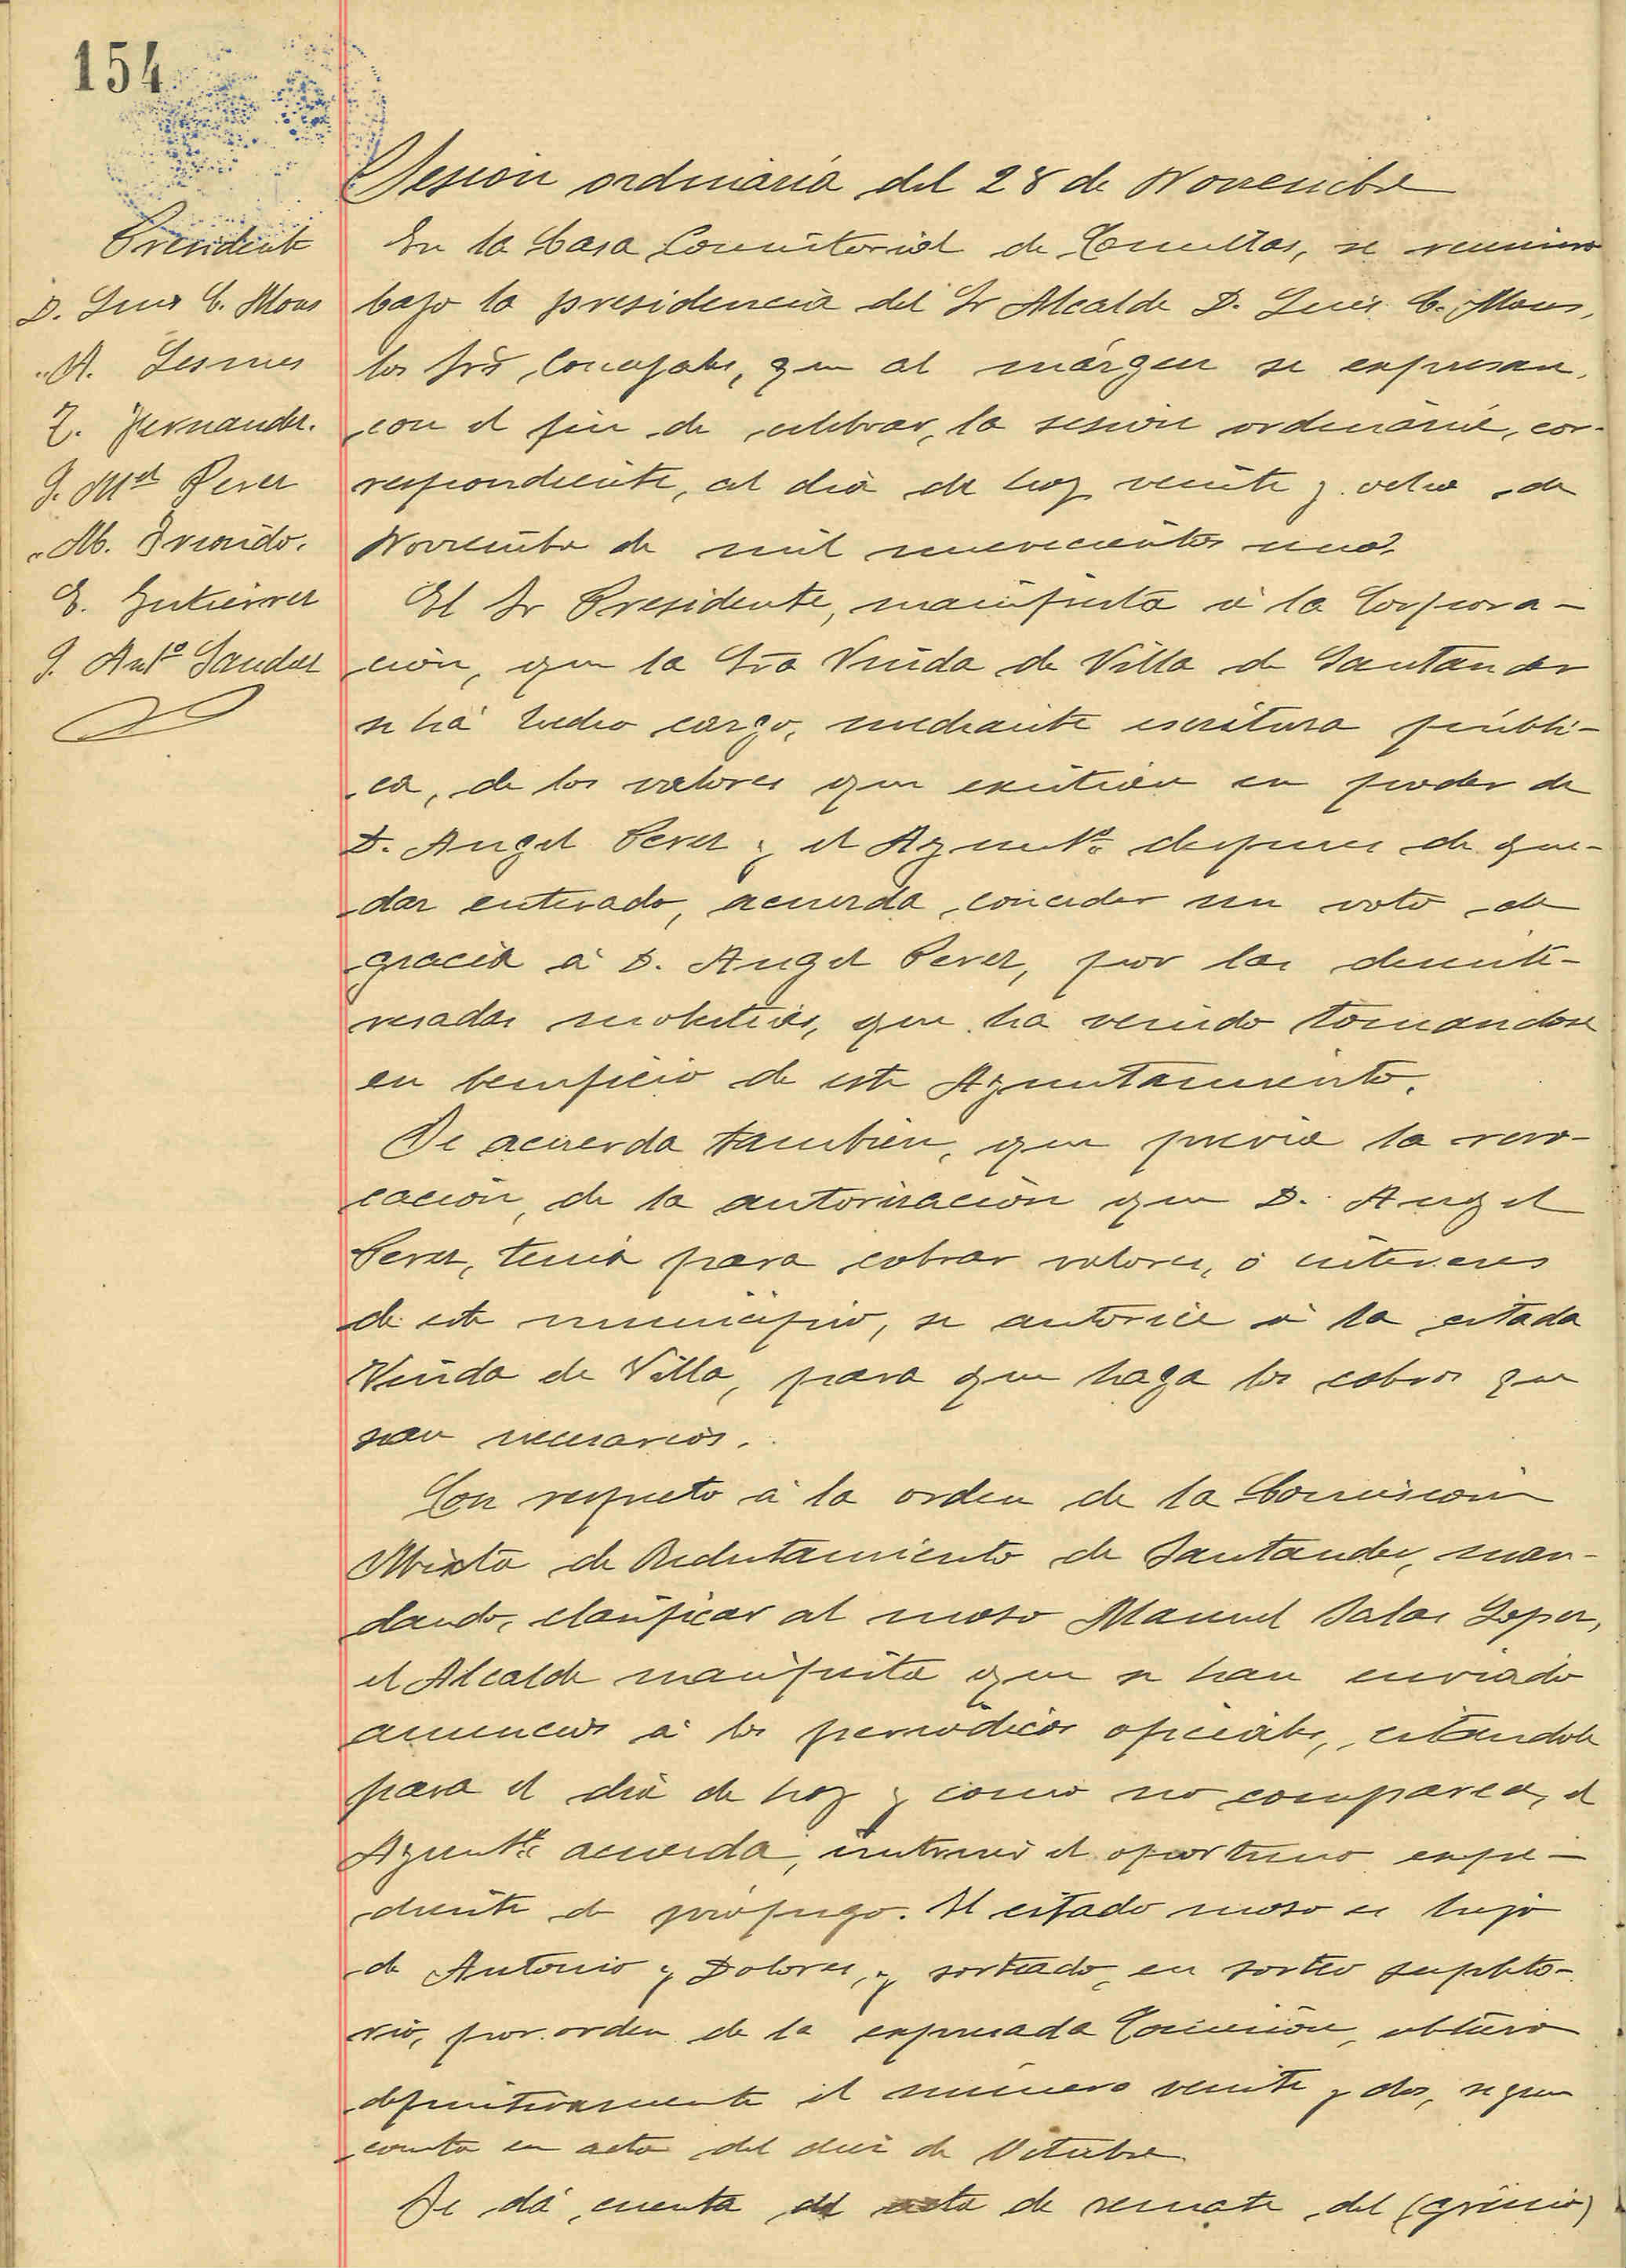 154
Sesion ordinaria del 28 de Noviembre
Presidente
D. Luis C. Mons
" A. Lesmes
Z. Fernandez.
J. Mel Perez
" M. Inondo.
E. Gutierrez
J. Anto Sanchez
En la Casa Consistorial de Comillas, se reunieron
bajo la presidencia del Sr Alcalde D. Luis C. Mons,
los Srs Concejales, que al márgen se expresan,
con el fin de celebrar, la sesion ordinaria, cor-
respondiente, al dia de hoy veinte y ocho de
Noviembre de mil novecientos uno.
El Sr Presidente, manifiesta á la Corpora-
cion, que la Sra Viuda de Villa de Santander
se há hecho cargo, mediante escritura públi-
ca, de los valores que existian en poder de
D. Angel Perez y el Ayuntº despues de que-
dar enterado, acuerda conceder un voto de
gracia á D. Angel Perez, por las desinte-
resadas molestias, que ha venido tomandose
en beneficio de este Ayuntamiento.
Se acuerda tambien, que previa la revo-
cacion, de la autorizacion que D. Angel
Perez, tenia para cobrar valores, ó intereses
de este municipio, se autorice á la citada
Viuda de Villa, para que haga los cobros que
sean necesarios.
Con respecto á la orden de la Comision
Mixta de Reclutamiento de Santander, man-
dando, clasificar al mozo Manuel Salas Lopez,
el Alcalde manifiesta que se han enviado
anuncios á los periodicos oficiales, citandole
para el dia de hoy y como no comparezca, el
Ayuntº acuerda, instruir el oportuno expe-
diente de prófugo. El citado mozo es hijo
de Antonio y Dolores, y sorteado, en sorteo supleto-
rio, por orden de la expresada Comision, obtuvo
definitivamente el número veinte y dos, segun
consta en acta del diez de Octubre
Se dá cuenta del acta de remate del (gremio)